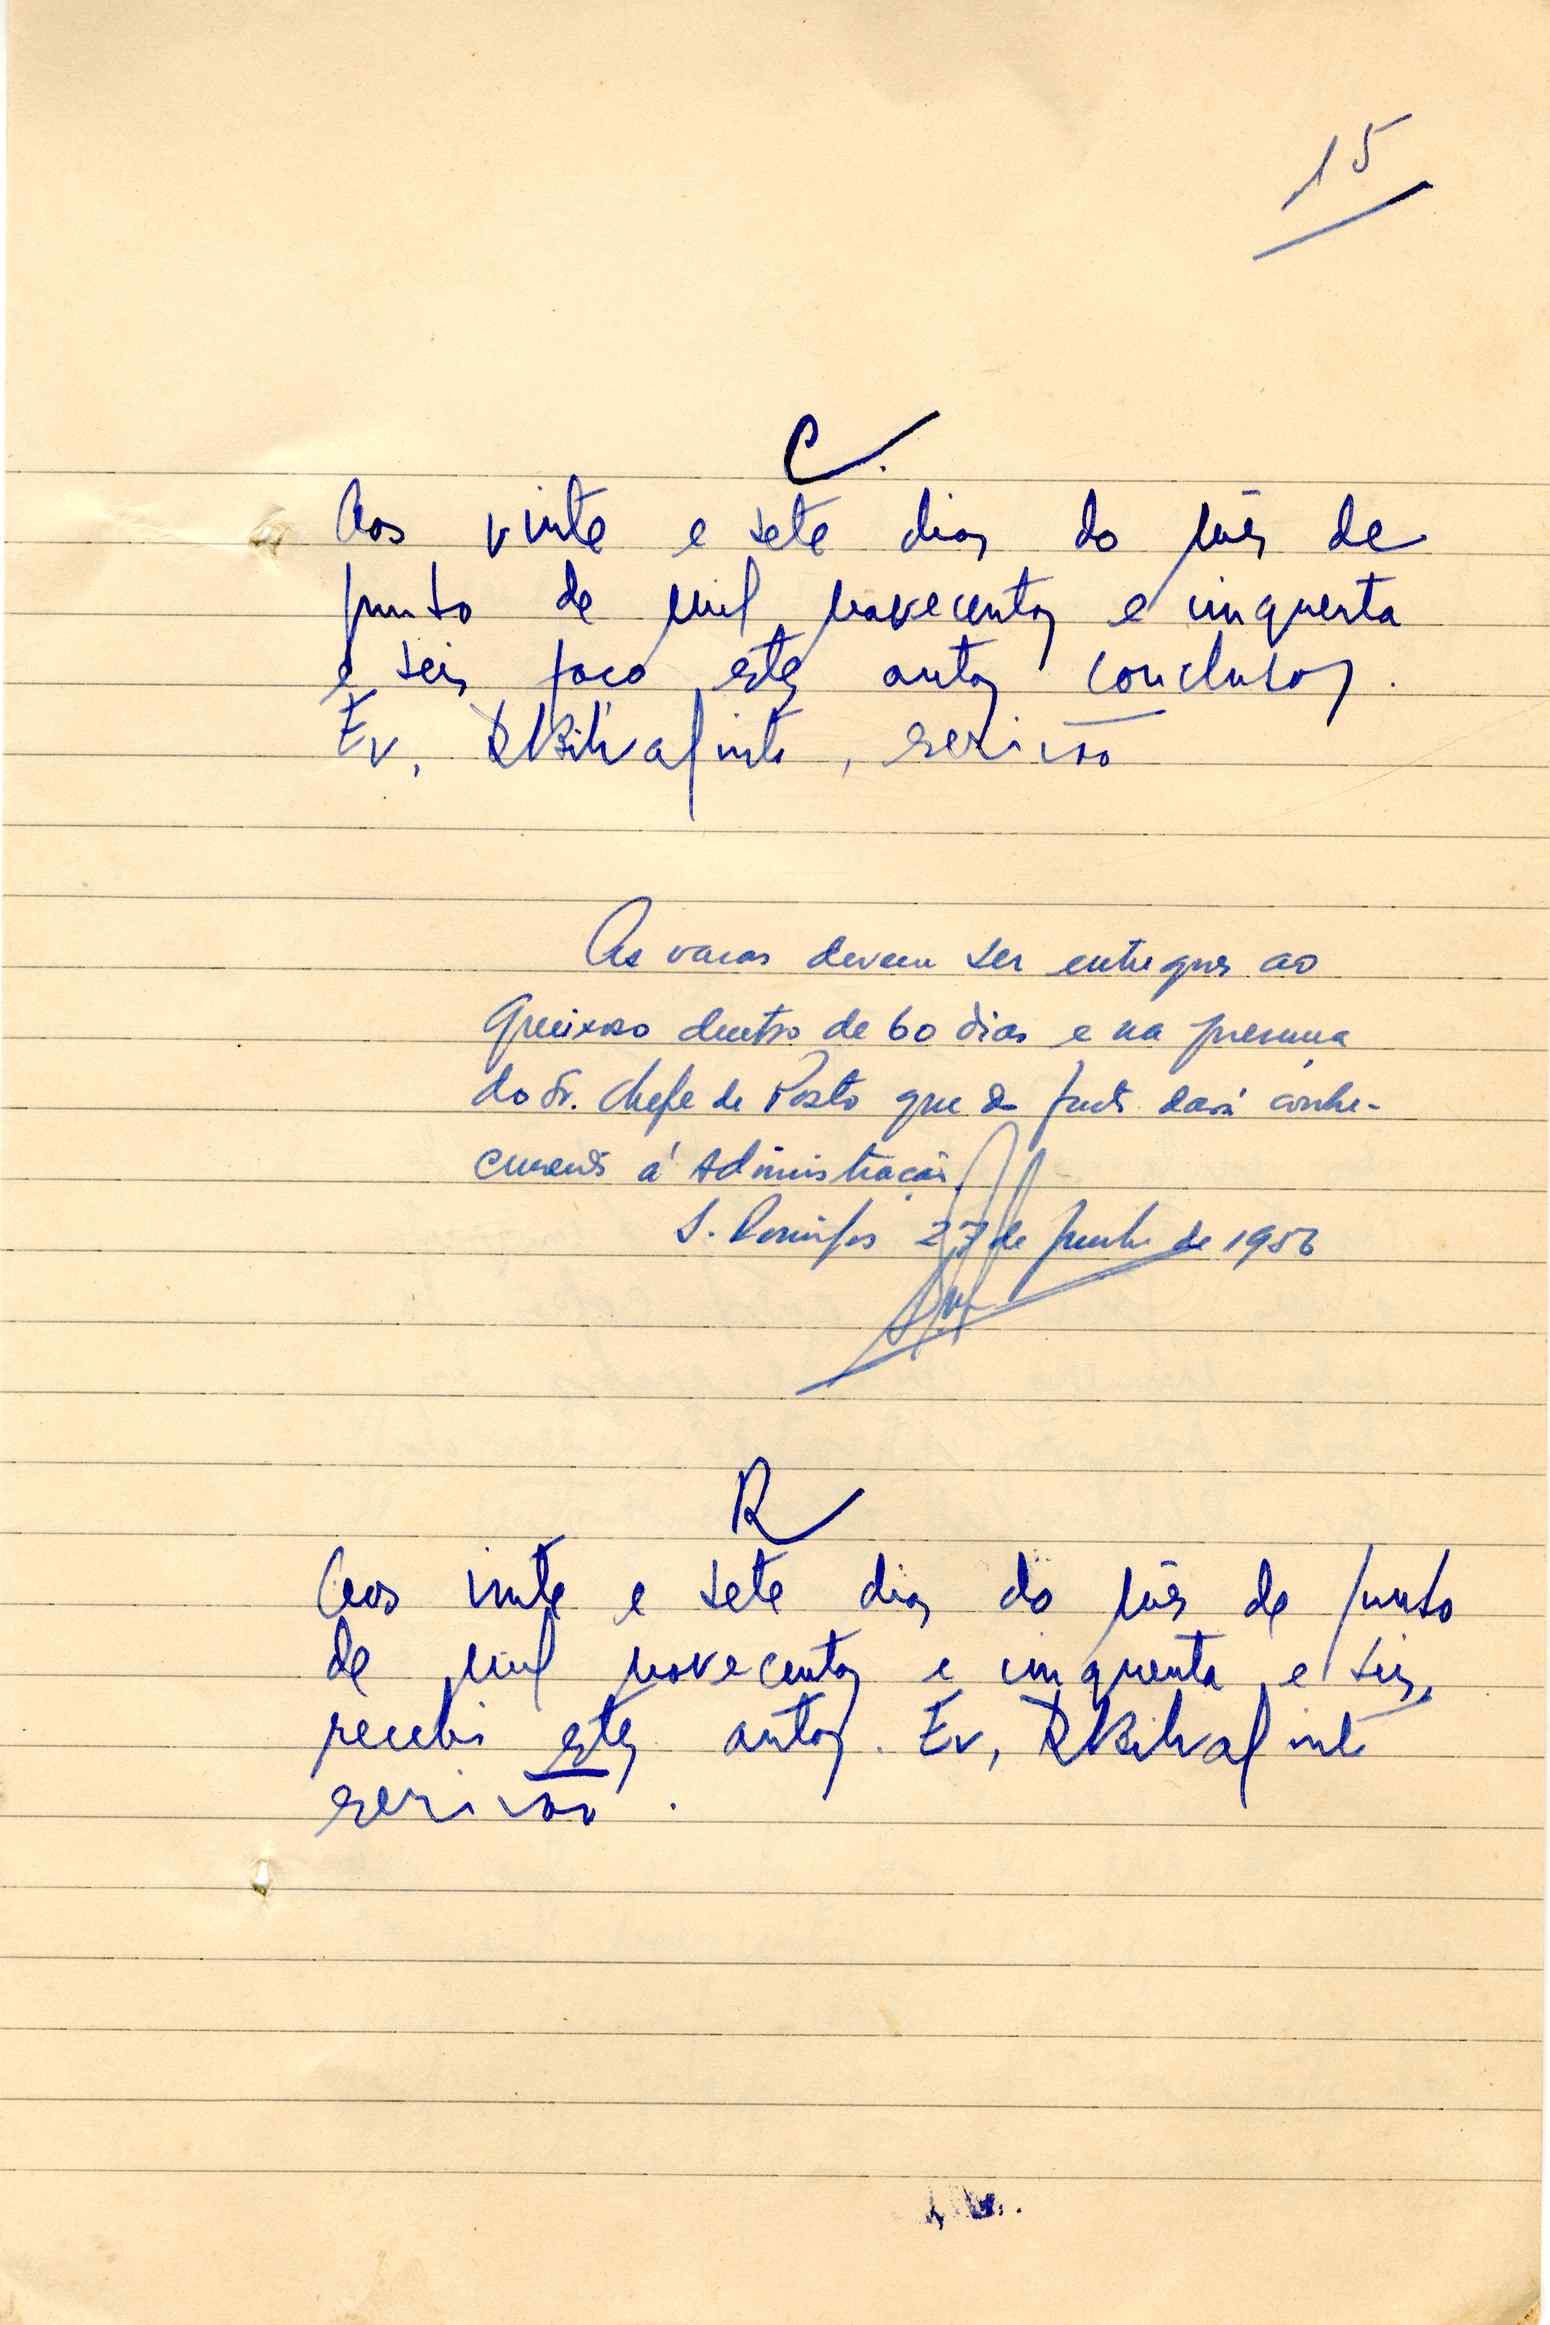 15
C.
Aos vinte e sete dias do mês de
junho de mil novecentos e cinquenta
e seis faço estes autos conclusos.
Eu, escrivão
As vacas devem ser entregues ao
queixoso dentro de 60 dias e na presença
do Sr. Chefe de Posto que do facto dará conhe-
cimento á Administração
S. Domingos 27 de Junho de 1956
R
Aos vinte e sete dias do mês de junho
de mil novecentos e cinquenta e seis,
recebi estes autos. Eu,
escrivão.